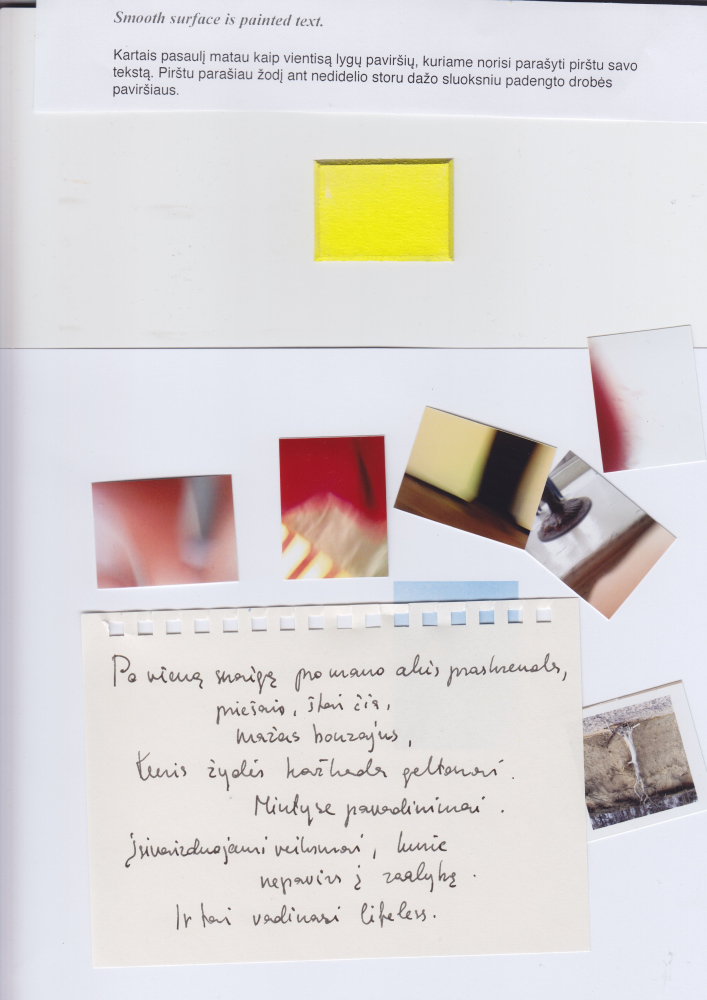 Smooth surface is painted text.
Kartais pasaulį matau kaip vientisą lygų paviršių, kuriame norisi parašyti pirštu savo
tekstą. Pirštu parašiau žodį ant nedidelio storu dažo sluoksniu padengto drobės
paviršiaus.
Po vieną snaigę pro mano akis praskrenda,
priešais, štai čia,
mažas bonzajus,
kuris žydės kažkada geltonai.
Mintyse pavadinimai.
Įsivaizduojami veiksmai, kurie
nepavirs į realybę.
Ir tai vadinasi lifeless.